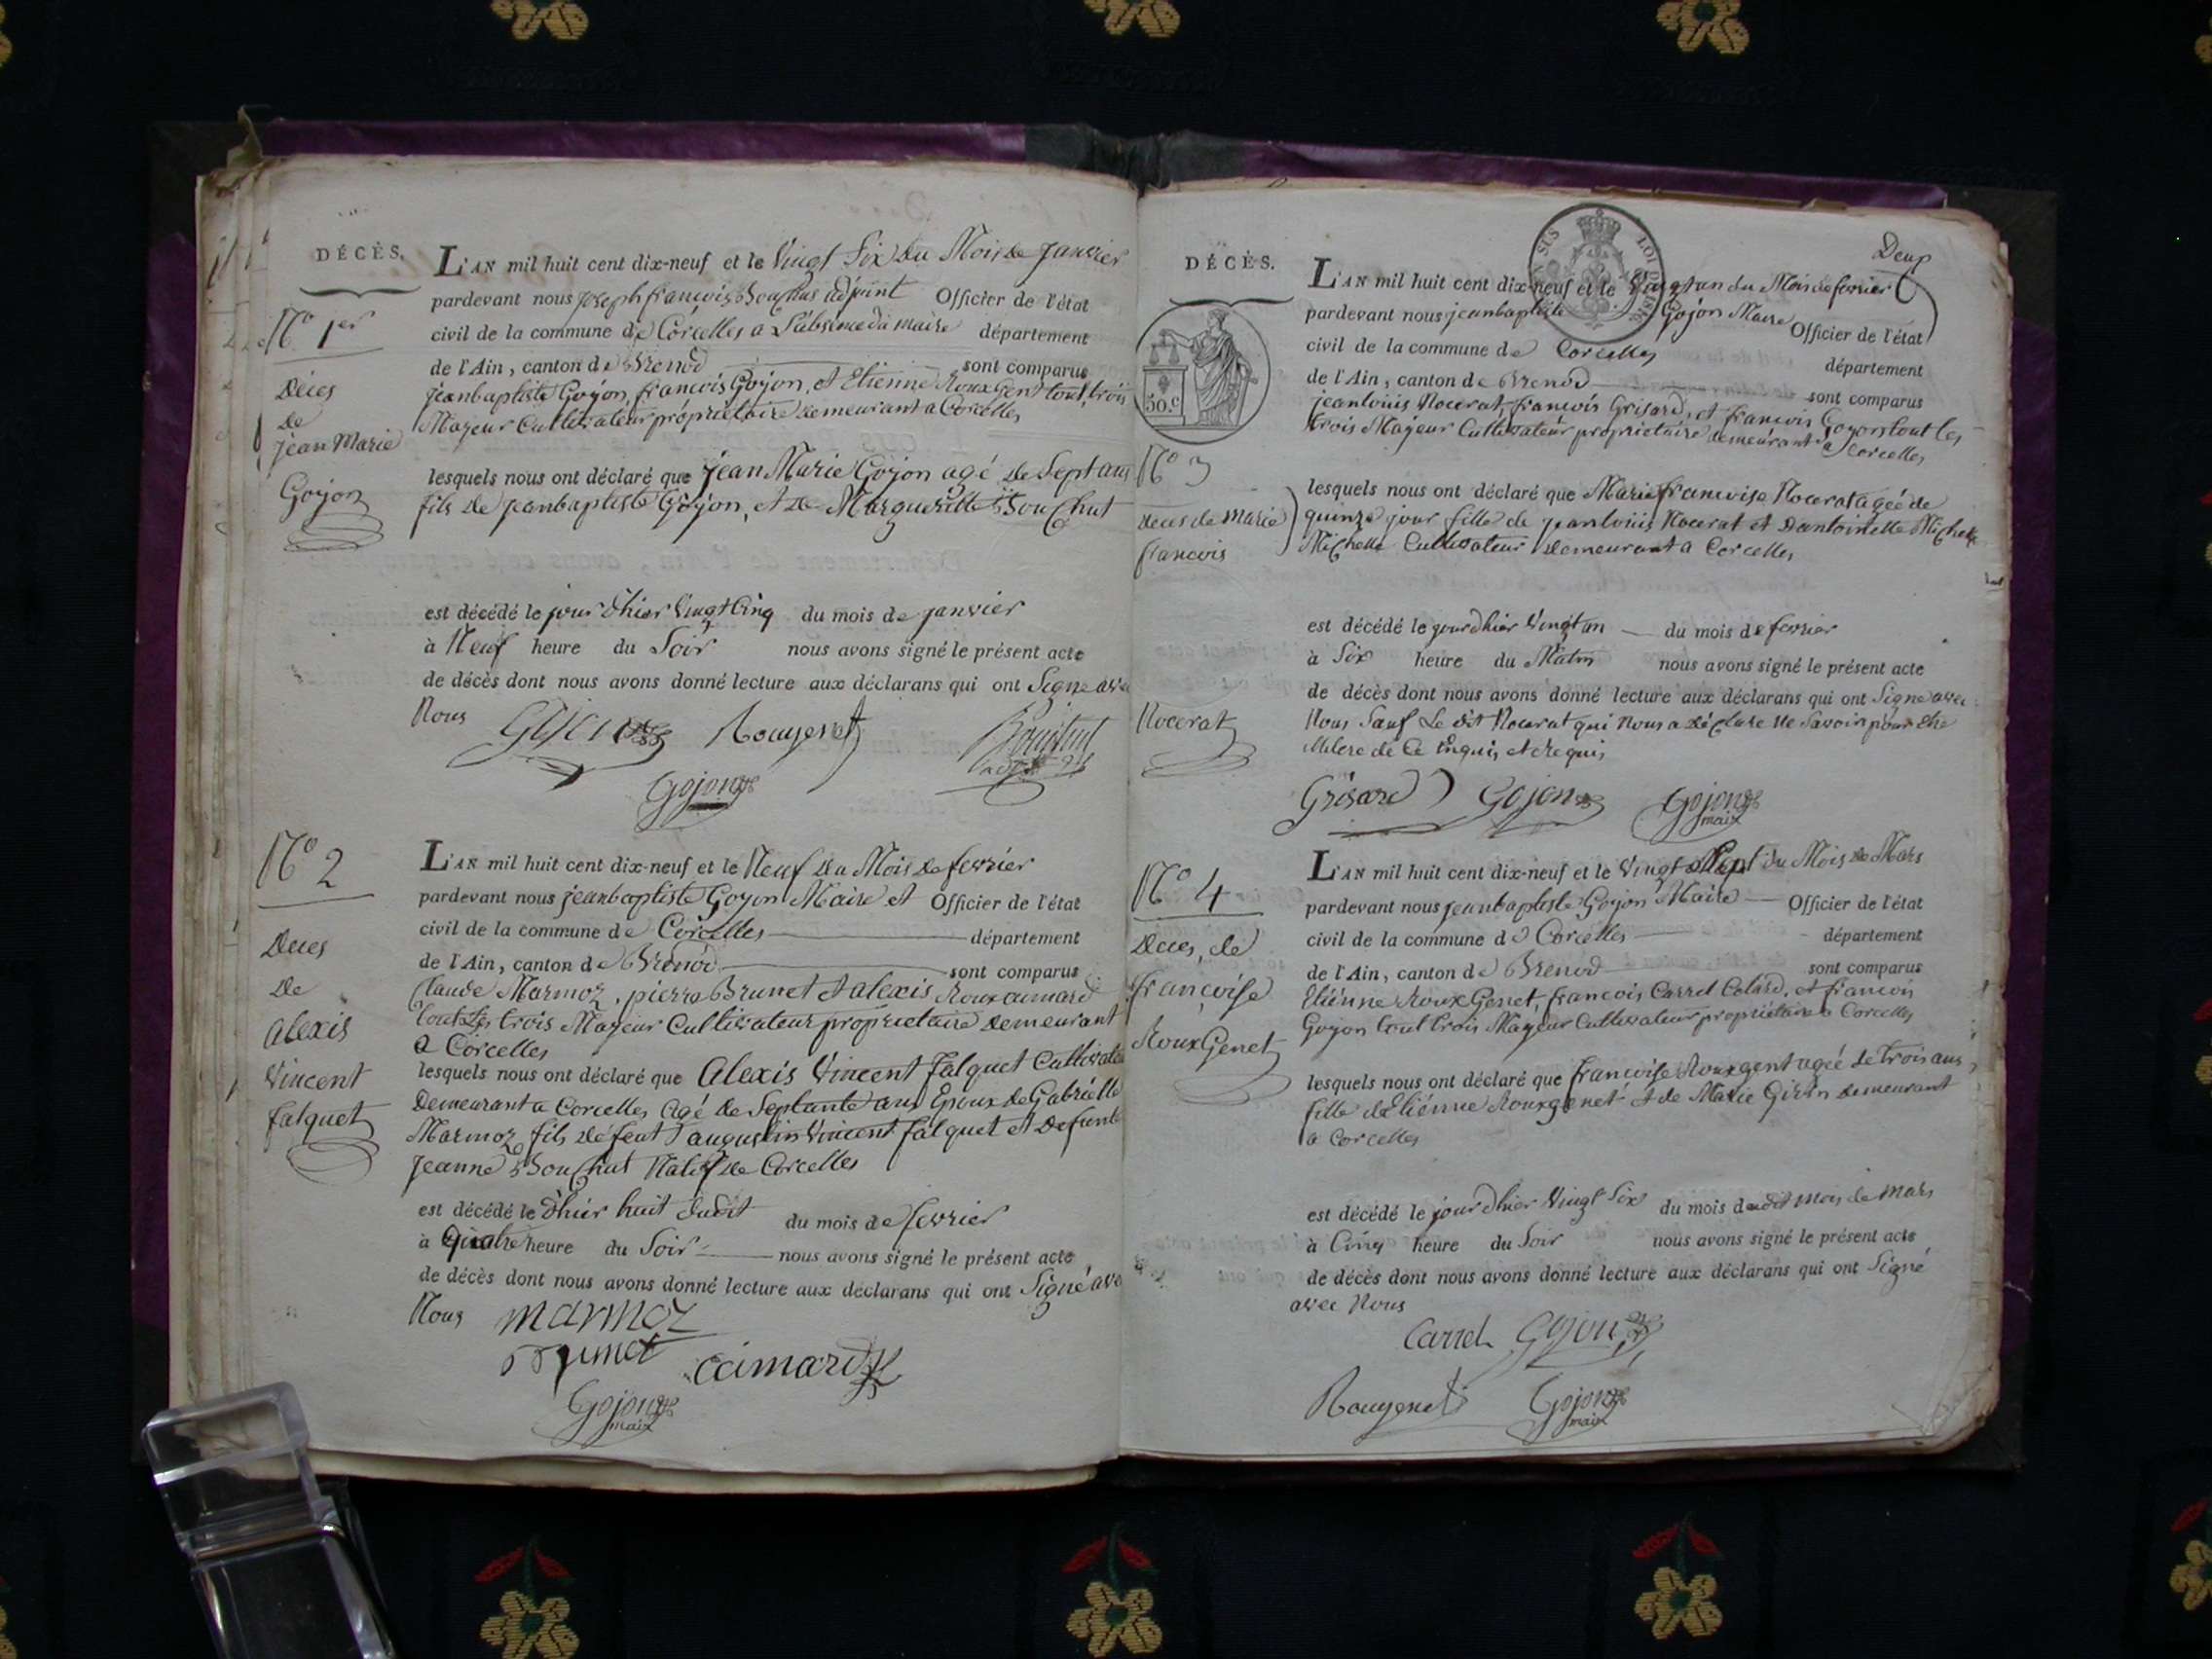 DÉCÈS.
L'AN mil huit cent dix-neuf et le Vingt Six du Mois de janvier
pardevant nous joseph françois Bouchut adjoint Officier de l'état
civil de la commune de Corcelles a L'absence du maire département
de l'Ain, canton de Brenod sont comparus
jeanbaptiste Gojon, françois Gojon, et Etienne Roux Genet tout trois
Majeur Cultivateur propriétaire demeurant a Corcelles
lesquels nous ont déclaré que jean Marie Gojon agé de Sept ans
fils de jeanbaptiste Gojon, et de Margueritte Bouchut
est décédé le jour d'hier Vingt Cinq du mois de janvier
à Neuf heure du Soir nous avons signé le présent acte
de décès dont nous avons donné lecture aux déclarans qui ont Signé avec
Nous
Gojon Rouxgenet Bouchut
Gojon
No 1er
Déces
de
jean Marie
Gojon
L'AN mil huit cent dix-neuf et le Neuf du Mois de fevrier
pardevant nous jeanbaptiste Gojon Maire et Officier de l'état
civil de la commune de Corcelles département
de l'Ain, canton de Brenod sont comparus
Claude Marmoz, pierre Brunet et alexis Roux aimard
tout Les trois Majeur Cultivateur proprietaire demeurant
a Corcelles
lesquels nous ont déclaré que Alexis Vincent falquet Cultivateu
Demeurant a Corcelles agé de Septante ans Epoux de Gabriélle
Marmoz fils défeut augustin Vincent falquet et Defunte
jeanne Bouchut Natif de Corcelles
est décédé le d'hier huit dudit du mois de fevrier
à Quatre heure du Soir nous avons signé le présent acte
de décès dont nous avons donné lecture aux déclarans qui ont Signé avec
Nous
marmoz
Brunet aimard
Gojon
maire
No 2
Deces
De
alexis
Vincent
falquet
Deux
DÉCÈS.
LOI DE 1816
50.c
L'AN mil huit cent dix-neuf et le Vingt un du Mois de fevrier
pardevant nous jeanbaptiste Gojon Maire Officier de l'état
civil de la commune de Corcelles département
de l'Ain, canton de Brenod sont comparus
jeanlouis Nocerat, françois Grisard, et françois Gojon tout Les
trois Majeur Cultivateur proprietaire demeurant a Corcelles
lesquels nous ont déclaré que Marie françoise Nocerat agée de
quinze jour fille de jeanlouis Nocerat et Dantoinette Michelle
Michelle Cultivateur demeurant a Corcelles
est décédé le jour d'hier Vingt un du mois de fevrier
à Six heure du Matin nous avons signé le présent acte
de décès dont nous avons donné lecture aux déclarans qui ont Signé avec
Nous Sauf Le dit Nocerat qui Nous a déclaré Ne Savoir pour
de Ce Enquis et Requis
Grisard Gojon Gojon
maire
No 3
deces de Marie
francois
Nocerat
L'AN mil huit cent dix-neuf et le Vingt Sept du Mois de Mars
pardevant nous jeanbaptiste Gojon Maire Officier de l'état
civil de la commune de Corcelles département
de l'Ain, canton de Brenod sont comparus
Etiénne Roux Genet, françois Carrel Colard, et françois
Gojon tout trois Majeur Cultivateur propriétaire a Corcelles
lesquels nous ont déclaré que françoise Rouxgent agée de trois ans,
fille d Etiénne Rouxgenet et de Marie Girin demeurant
a Corcelles
est décédé le jour d'hier Vingt Six du mois dudit mois de mars
à Cinq heure du Soir nous avons signé le présent acte
de décès dont nous avons donné lecture aux déclarans qui ont Signé
avec Nous
Carrel Gojon
Rouxgenet Gojon
maire
No 4
Deces, de
françoise
Roux Genet